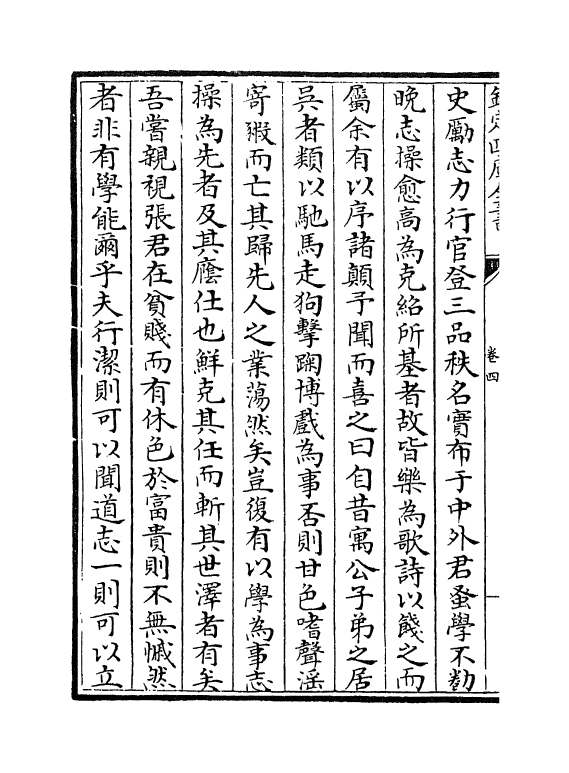 欽定四庫全書
卷四
史勵志力行官登三品秩名實布于中外君蚤學不勌
晩志操愈高為克紹所基者故皆樂為歌詩以餞之而
屬余有以序諸顛予聞而喜之曰自昔寓公子弟之居
吳者類以馳馬走狗擊踘博戲為事否則甘色嗜聲滛
寄豭而亡其歸先人之業蕩然矣豈復有以學為事志
操為先者及其廕仕也鮮克其任而斬其世澤者有矣
吾嘗親視張君在貧賤而有休色於富貴則不無慽然
者非有學能爾乎夫行潔則可以聞道志一則可以立